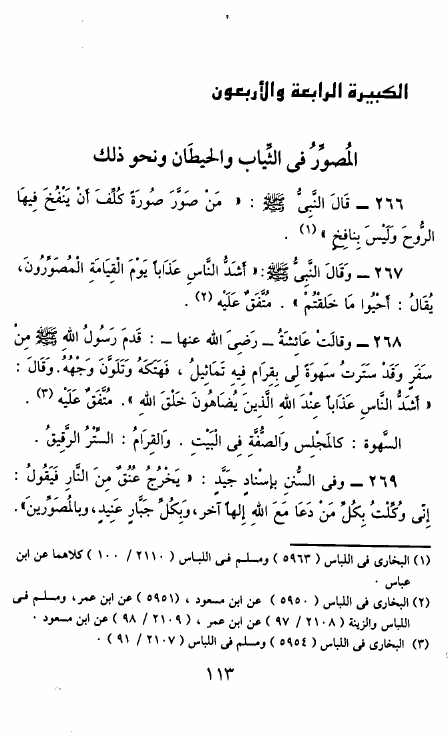 الكبيرة الرابعة والأربعون
المُصوِّرُ فى الثِّياب والحيطَان ونحو ذلك
٢٦٦ ــ قَالَ النَّبِىُّ ﷺ : « مَنْ صَوَّرَ صُورَةً كُلِّفَ أَنْ يَنْفُخَ فِيهَا
الرُّوحَ وَلَيْسَ بِنافِخٍ » (١) .
٢٦٧ ــ وَقَالَ النَّبِىُّ ﷺ : « أَشَدُّ النَّاسِ عَذَاباً يَوْمَ الْقِيَامَةِ الْمُصَوِّرُونَ،
يقَالُ : أَحْيُوا مَا خَلَقْتُمْ » . مُتَّفَقٌ عَلَيْهِ (٢) .
٢٦٨ ــ وقالَتْ عَائِشَةُ ــ رَضِىَ اللهُ عنها ــ : قَدِمَ رَسُولُ اللهِ ﷺ مِنْ
سَفَرٍ وَقَدْ سَتَرتُ سَهوَةً لِى بِقِرَامٍ فِيهِ تَمَاثِيلُ ، فَهَتَكَهُ وَتَلَوَّنَ وَجْهُهُ. وَقَالَ :
« أَشَدُّ النَّاسِ عَذَاباً عِنْدَ اللهِ الَّذِينَ يُضَاهُونَ خَلْقَ اللهِ ». مُتَّفَقٌ عَلَيْهِ (٣) .
السَّهوة : كالمَجْلِس وَالصُّفَّةِ فِى الْبَيْتِ . وَالقِرَامُ : السِّتْرُ الرَّقِيقُ .
٢٦٩ ــ وفى السُّننِ بِإسْنادٍ جَيِّدٍ : « يَخْرُجُ عُنُقٌ مِنَ النَّارِ فَيَقُولُ :
إِنِّى وُكِّلْتُ بِكُلِّ مَنْ دَعَا مَعَ اللهِ إلهاً آخر، وَبِكُلِّ جَبَّارٍ عَنِيدٍ، وبالمُصَوِّرينَ».
(١) البخارى فى اللباس ( ٥٩٦٣ ) ومسلم فى اللباس ( ٢١١٠ / ١٠٠ ) كلاهما عن ابن
عباس .
(٢) البخارى فى اللباس ( ٥٩٥٠ ) عن ابن مسعود ، (٥٩٥١ ) عن ابن عمر، ومسلم فى
اللباس والزينة ( ٢١٠٨ / ٩٧ ) عن ابن عمر ، ( ٢١٠٩ / ٩٨ ) عن ابن مسعود .
(٣) البخارى فى اللباس ( ٥٩٥٤ ) ومسلم فى اللباس ( ٢١٠٧ / ٩١ ) .
١١٣